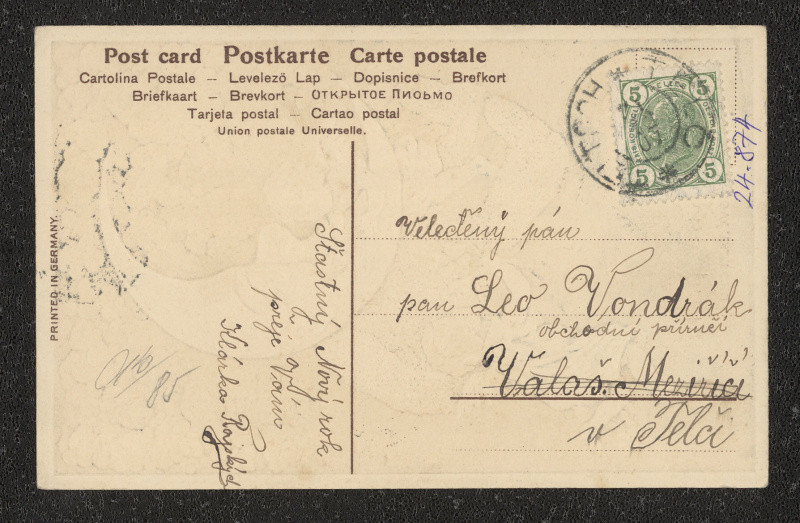 Post card Postkarte Carte postale
Cartolina Postale – Levelező Lap – Dopisnice – Brefkort
Briefkaart – Brevkort – ОТКРЫТОЕ ПИСЬМО
Tarjeta postal – Cartao postal
Union postale Universelle.
PRINTED IN GERMANY.
5 5
5 5
24-874
Veleděný pán
pan Leo Vondrák
obchodní příručí
Valaš. Meziříčí
v Telči
Štastný Nový rok
přeje Vám
Klárka
85